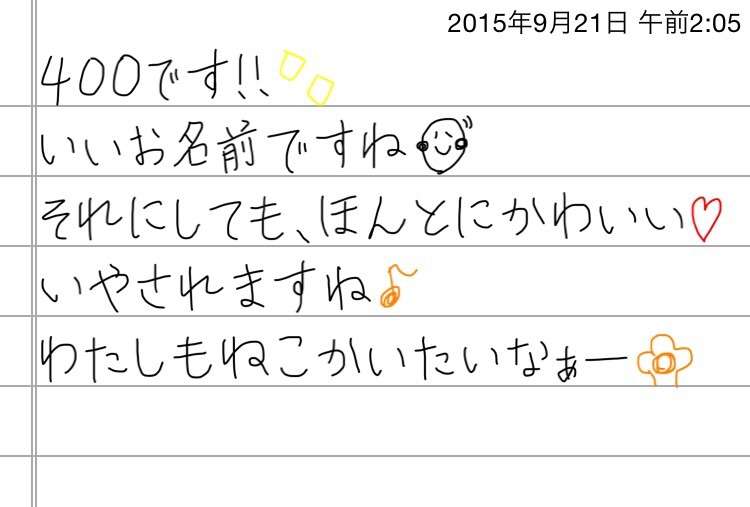 2015年9月21日 午前2:05
400です!!
いいお名前ですね
それにしても、ほんとにかわいい♡
いやされますね♪
わたしもねこかいたいなぁー